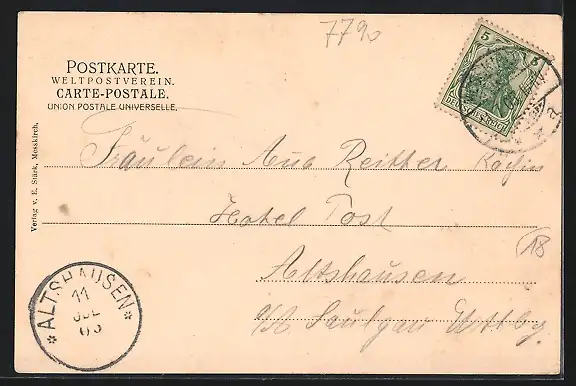 7790
POSTKARTE.
WELTPOSTVEREIN.
CARTE-POSTALE.
UNION POSTALE UNIVERSELLE.
5 5
DEUTSCHES REICH
Verlag v. E. Stürk, Messkirch.
Fräulein Ana Reitter Köchin
Hotel Post
18
Altshausen
O/A Saulgau Wttbg.
* ALTSHAUSEN *
11
JUL
03